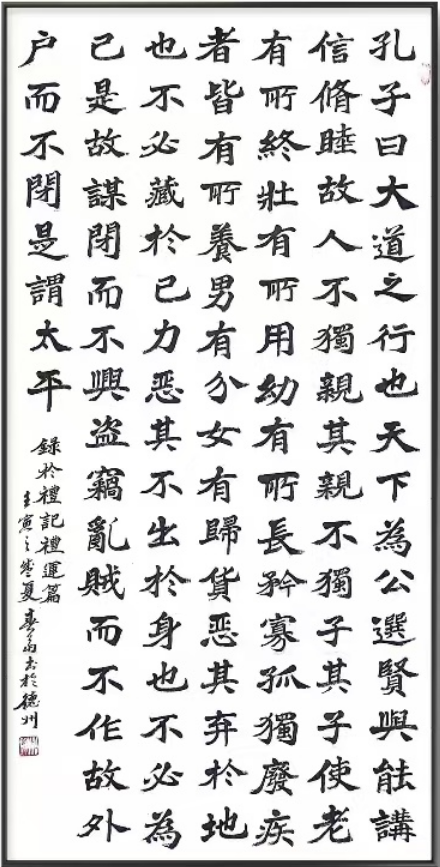 孔子曰大道之行也天下為公選賢與能講
信脩睦故人不獨親其親不獨子其子使老
有所終壯有所用幼有所長矜寡孤獨廢疾
者皆有所養男有分女有歸貨恶其弃於地
也不必藏於己力恶其不出於身也不必為
己是故謀閉而不興盜竊亂賊而不作故外
户而不閉是謂太平
錄於禮記禮運篇
壬寅之夏書於德州